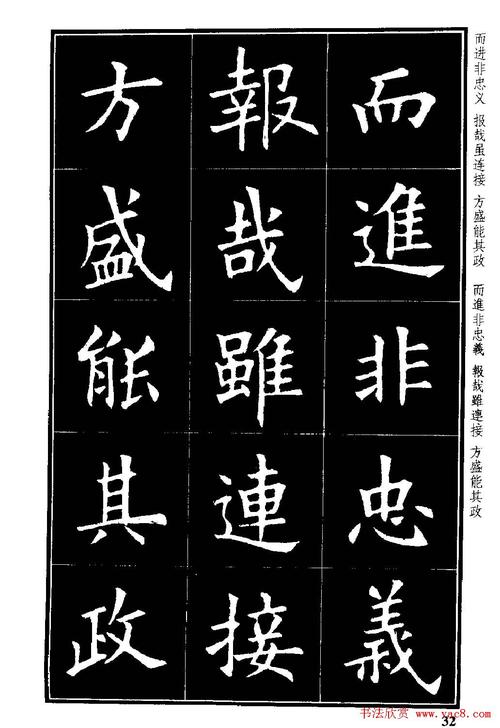 而進非忠義
報哉雖連接
方盛能其政
而进非忠义 报哉虽连接 方盛能其政 而進非忠義 報哉雖連接 方盛能其政
32
书法欣赏 www.yac8.com